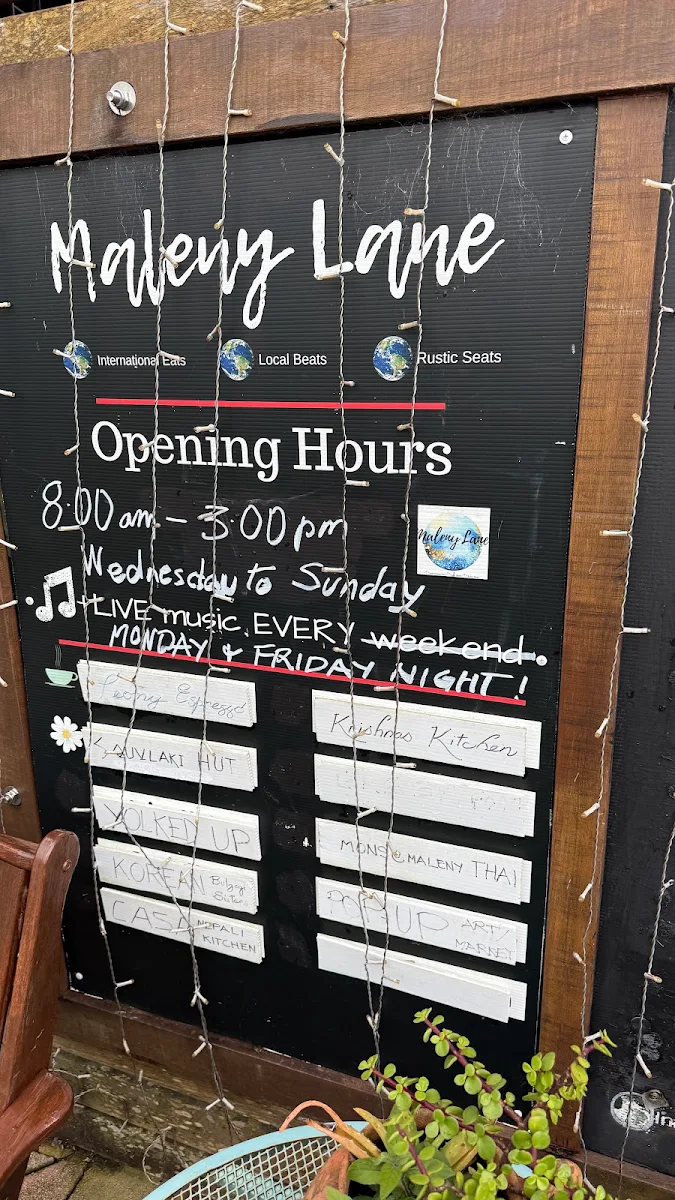 Maleny Lane
International Eats
Local Beats
Rustic Seats
Opening Hours
8.00am - 3.00pm
Wednesday to Sunday
Maleny Lane
LIVE music EVERY weekend
MONDAY & FRIDAY NIGHT!
Krishnas Kitchen
SOUVLAKI HUT
YOLKED UP
MONS @ MALENY THAI
KOREAN
POP-UP ART/
MARKET
CASA NEPALI
KITCHEN